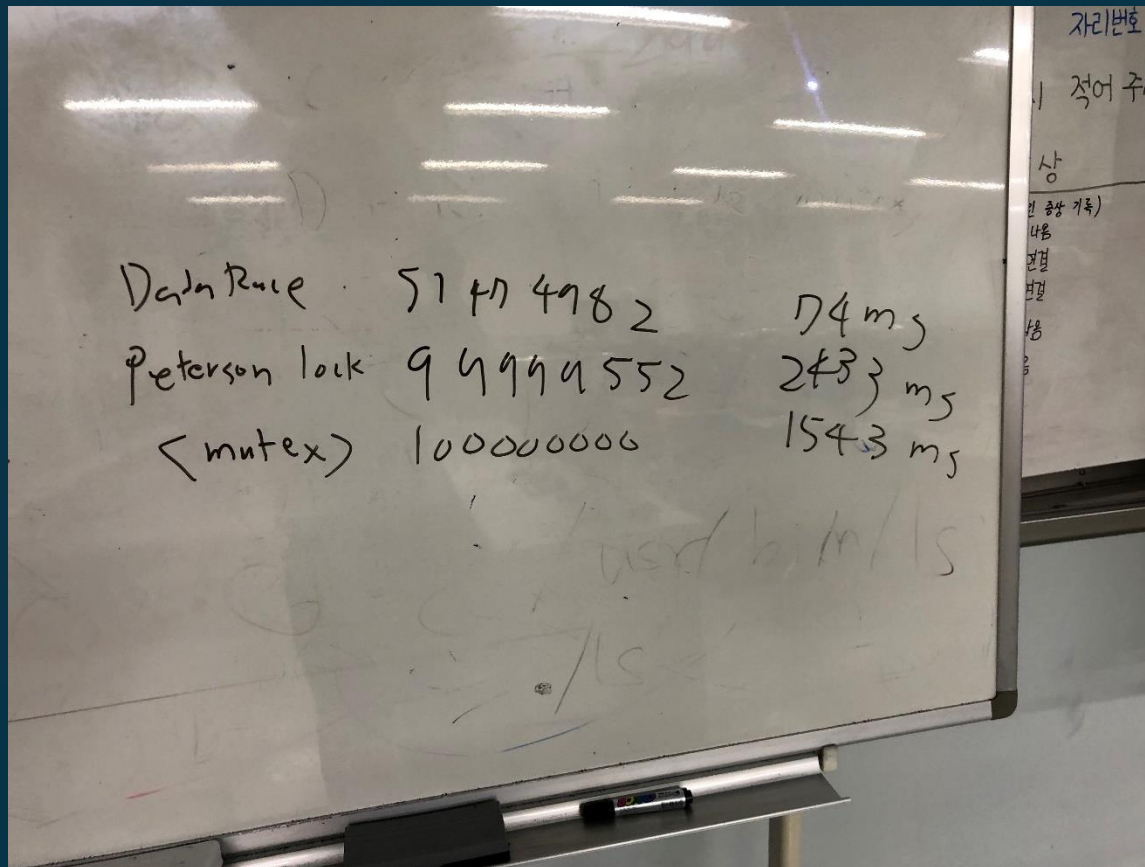 Data Race 57474982 74ms
Peterson lock 99999552 2433 ms
<mutex> 100000000 1543 ms
/usr/bin/ls
/ls
자리번호
적어 주
상
증상 기록)
나옴
연결
연결